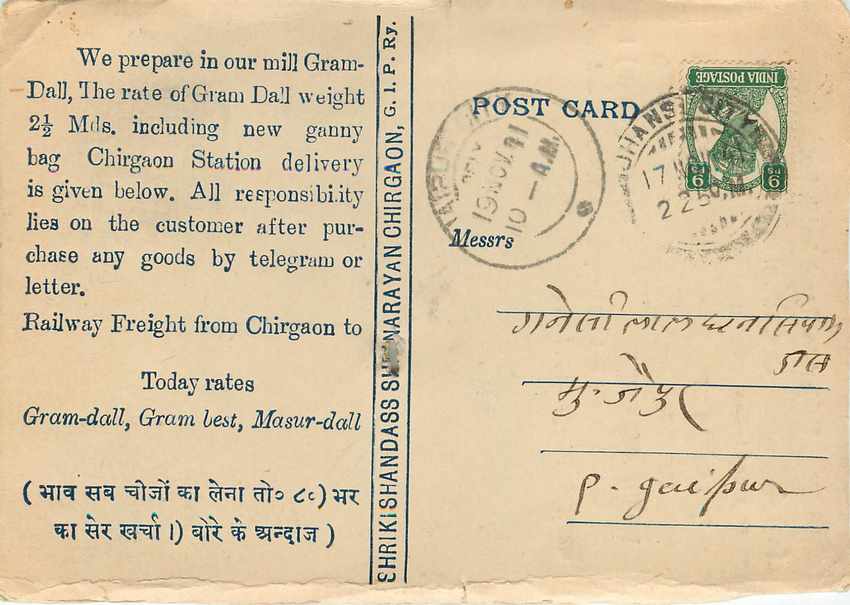 We prepare in our mill Gram-
Dall, The rate of Gram Dall weight
2½ Mds. including new ganny
bag Chirgaon Station delivery
is given below. All responsibility
lies on the customer after pur-
chase any goods by telegram or
letter.
Railway Freight from Chirgaon to
Today rates
Gram-dall, Gram best, Masur-dall
( भाव सब चीजों का लेना तो० ८०) भर
का सेर खर्चा ।) बोरे के अन्दाज )
SHRIKISHANDASS SHRINARAYAN CHIRGAON, G. I. P. Ry.
POST CARD
INDIA POSTAGE
9 PS
9 PS
JHANSI CITY
17 NOV
JAIPUR
19 NOV. 41
10 — A.M.
Messrs
गनेसीलाल
दास
मु. जैपुर
P. Jaipur